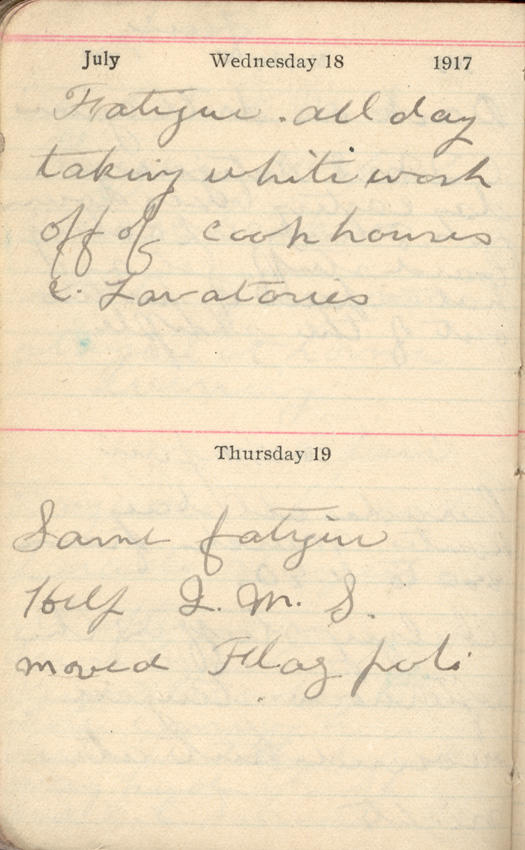 July Wednesday 18 1917
Fatigue. all day
taking white wash
off of cook houses
& Lavatories
Thursday 19
Same fatigue
Help Q. M. S.
moved Flag pole